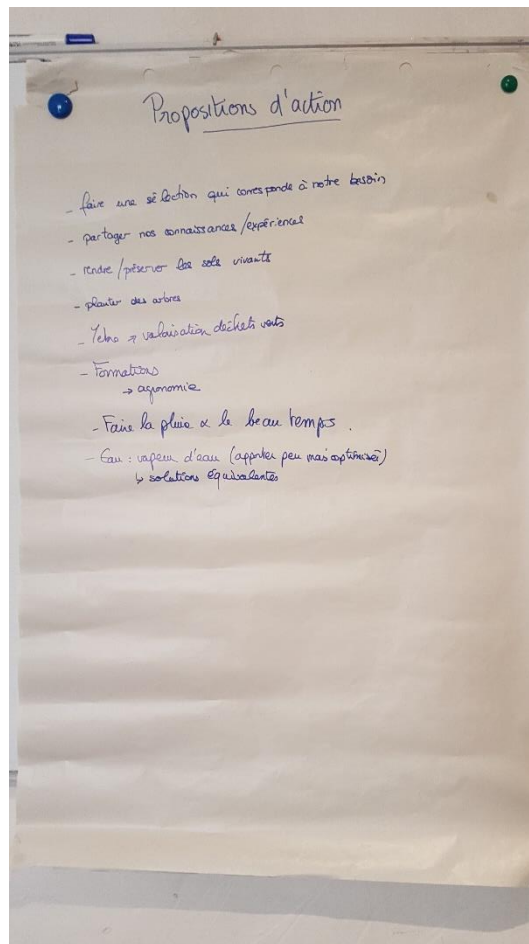 Propositions d'action
- faire une sélection qui corresponde à notre besoin
- partager nos connaissances/expériences
- rendre/préserver les sols vivants
- planter des arbres
- valorisation déchets verts
- Formations
→ agronomie
- Faire la pluie & le beau temps.
- Eau : vapeur d'eau (apporter peu mais optimiser)
↳ solutions équivalentes